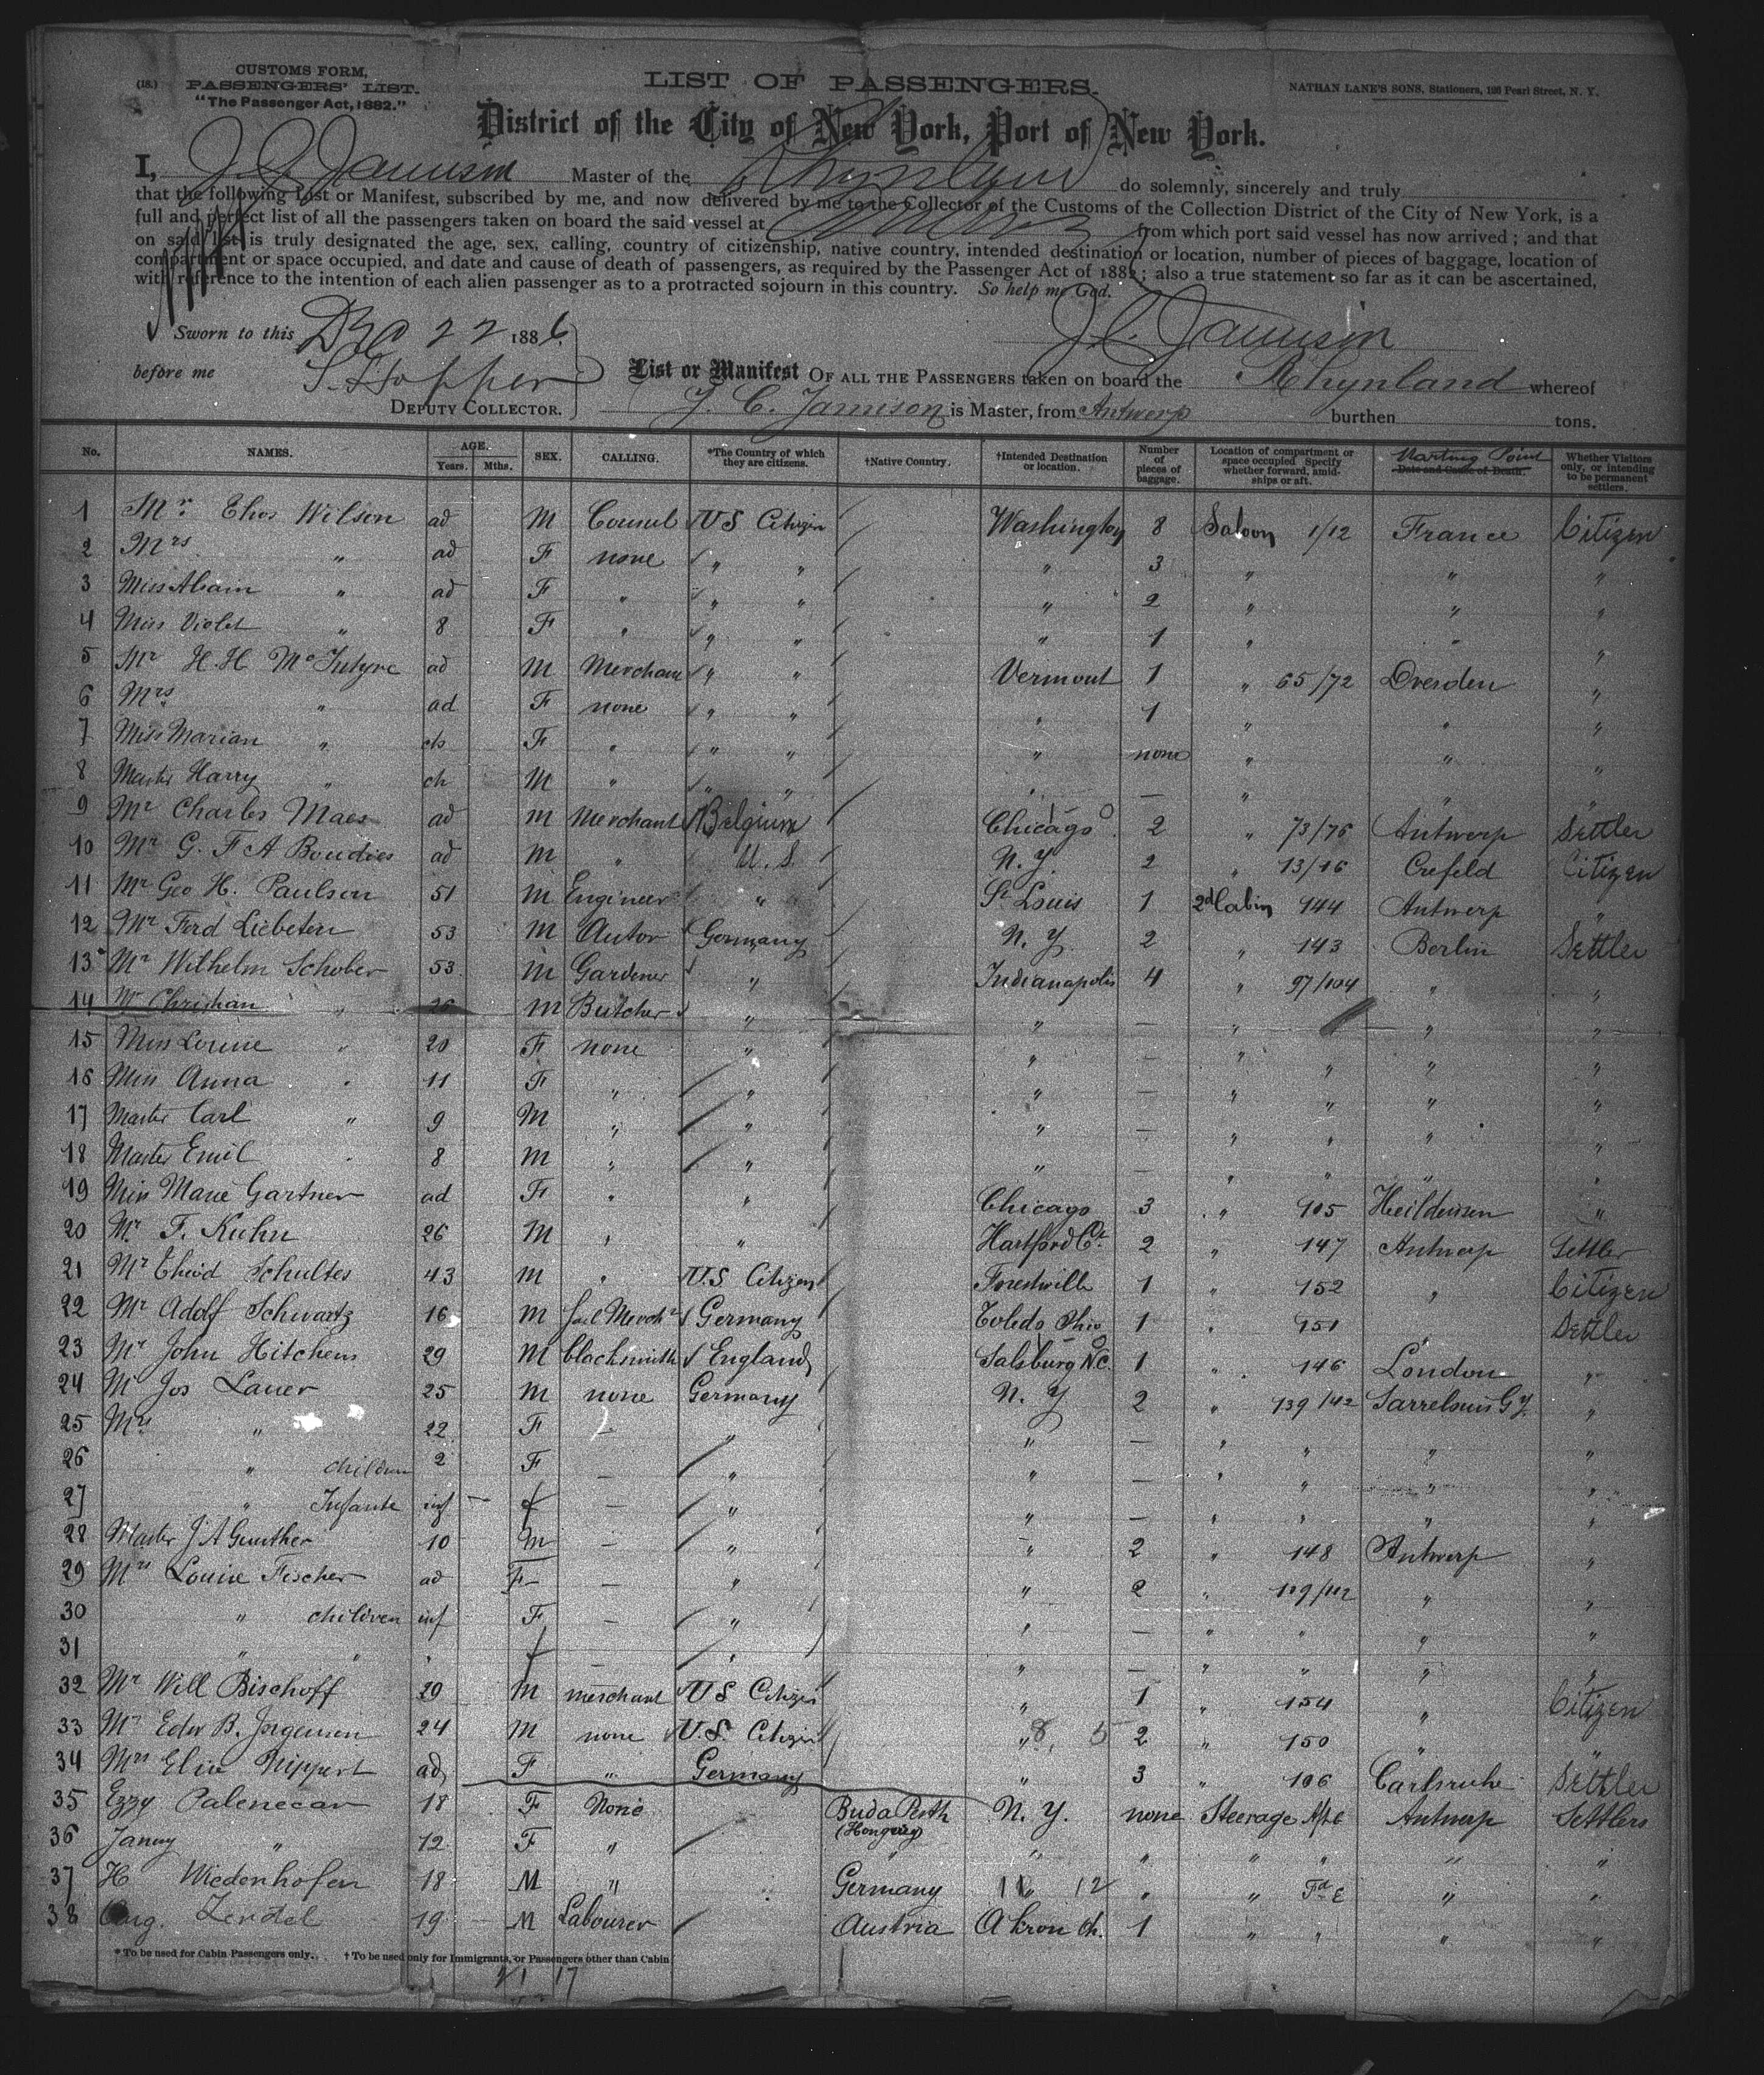 (18.)
CUSTOMS FORM,
PASSENGERS' LIST.
"The Passenger Act, 1882."
LIST OF PASSENGERS.
NATHAN LANE'S SONS, Stationers, 126 Pearl Street, N. Y.
District of the City of New York, Port of New York.
I, J. C. Jamison Master of the Rhynland do solemnly, sincerely and truly
that the following List or Manifest, subscribed by me, and now delivered by me to the Collector of the Customs of the Collection District of the City of New York, is a
full and perfect list of all the passengers taken on board the said vessel at Antwerp from which port said vessel has now arrived; and that
on said list is truly designated the age, sex, calling, country of citizenship, native country, intended destination or location, number of pieces of baggage, location of
compartment or space occupied, and date and cause of death of passengers, as required by the Passenger Act of 1882; also a true statement so far as it can be ascertained,
with reference to the intention of each alien passenger as to a protracted sojourn in this country. So help me God.
Sworn to this Dec 22 1886 J. C. Jamison
before me S. Hopper
DEPUTY COLLECTOR.
List or Manifest OF ALL THE PASSENGERS taken on board the Rhynland whereof
J. C. Jamison is Master, from Antwerp burthen tons.
No. NAMES. AGE. Years. Mths. SEX. CALLING. *The Country of which they are citizens. †Native Country. †Intended Destination or location. Number of pieces of baggage. Location of compartment or space occupied Specify whether forward, amidships or aft. Starting Point Date and Cause of Death. Whether Visitors only, or intending to be permanent settlers.
1 Mr. Thos Wilson ad M Consul US Citizen Washington 8 Saloon 1/12 France Citizen
2 Mrs " ad F none " " " 3 " " "
3 Miss " ad F " " " " 2 " " "
4 Miss Violet " 8 F " " " " 1 " " "
5 Mr H. H. McIntyre ad M Merchant " " Vermont 1 " 65/72 Dresden "
6 Mrs " ad F none " " " 1 " " "
7 Miss Marian " ch F " " " " none " " "
8 Master Harry " ch M " " " " — " " "
9 Mr Charles Maes ad M Merchant Belgium Chicago 2 " 73/76 Antwerp Settler
10 Mr G. F A Boudies ad M " U. S. N. Y. 2 " 13/16 Crefeld Citizen
11 Mr Geo H. Paulson 51 M Engineer " St Louis 1 2d Cabin 144 Antwerp "
12 Mr Ferd Liebeten 53 M Autor Germany N. Y. 2 " 143 Berlin Settler
13 Mr Wilhelm Schober 53 M Gardener " Indianapolis 4 " 97/104 " "
14 Mr Christian " M Butcher " " — " " "
15 Miss Louise " 20 F none " " — " " " "
16 Miss Anna " 11 F " " " — " " " "
17 Master Carl " 9 M " " " — " " " "
18 Master Emil " 8 M " " " — " " " "
19 Miss Marie Gartner ad F " " Chicago 3 " 105 "
20 Mr. F. Kuhn 26 M " " Hartford Ct. 2 " 147 Antwerp Settler
21 Mr Theod Schultes 43 M " U.S. Citizen Forestville 1 " 152 " Citizen
22 Mr Adolf Schwartz 16 M Germany Toledo Ohio 1 " 151 " Settler
23 Mr John Hitchens 29 M blacksmith England Salsburg N.C. 1 " 146 London "
24 Mr Jos Lauer 25 M none Germany N. Y 2 " 139/142 "
25 Mrs " 22 F — " " — " " " "
26 " children 2 F — " " — " " " "
27 " Infante inf f — " " — " " " "
28 Master J A Gunther 10 M — " " 2 " 148 Antwerp "
29 Mrs Louise Fischer ad F — " " 2 " 109/112 " "
30 " children inf F — " " — " " " "
31 " " " f — " " — " " " "
32 Mr Will Bischoff 29 M merchant US Citizen " 1 " 154 " Citizen
33 Mr Edw B. Jorgensen 24 M none U.S. Citizen " 2 " 150 " "
34 Mrs Elise Nippert ad F " Germany " 3 " 106 Carlsruhe Settler
35 Ezzy Palenecar 18 F None Buda Pesth (Hongrey) N. Y. none Steerage Aft E Antwerp Settlers
36 Janny " 12 F " " " " " " " "
37 H Wiedenhofen 18 M " Germany " " " Fd E " "
38 Zendel 19 M Labourer Austria Akron Oh. 1 " " " "
* To be used for Cabin Passengers only. † To be used only for Immigrants, or Passengers other than Cabin